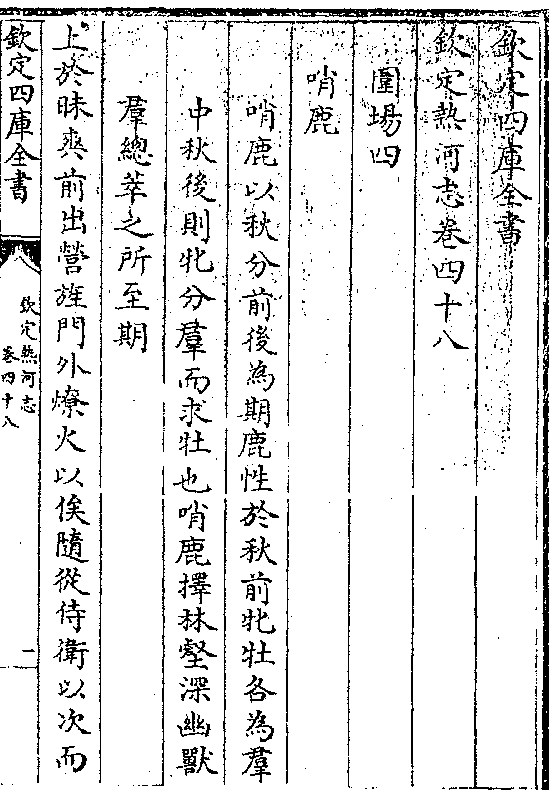 欽定四庫全書
欽定熱河志卷四十八
圍場四
哨鹿
哨鹿以秋分前後為期鹿性於秋前牝牡各為羣
中秋後則牝分羣而求牡也哨鹿擇林壑深幽獸
羣總萃之所至期
上於昧爽前出營旌門外燎火以俟隨從侍衛以次而
欽定四庫全書
欽定熱河志
卷四十八
一